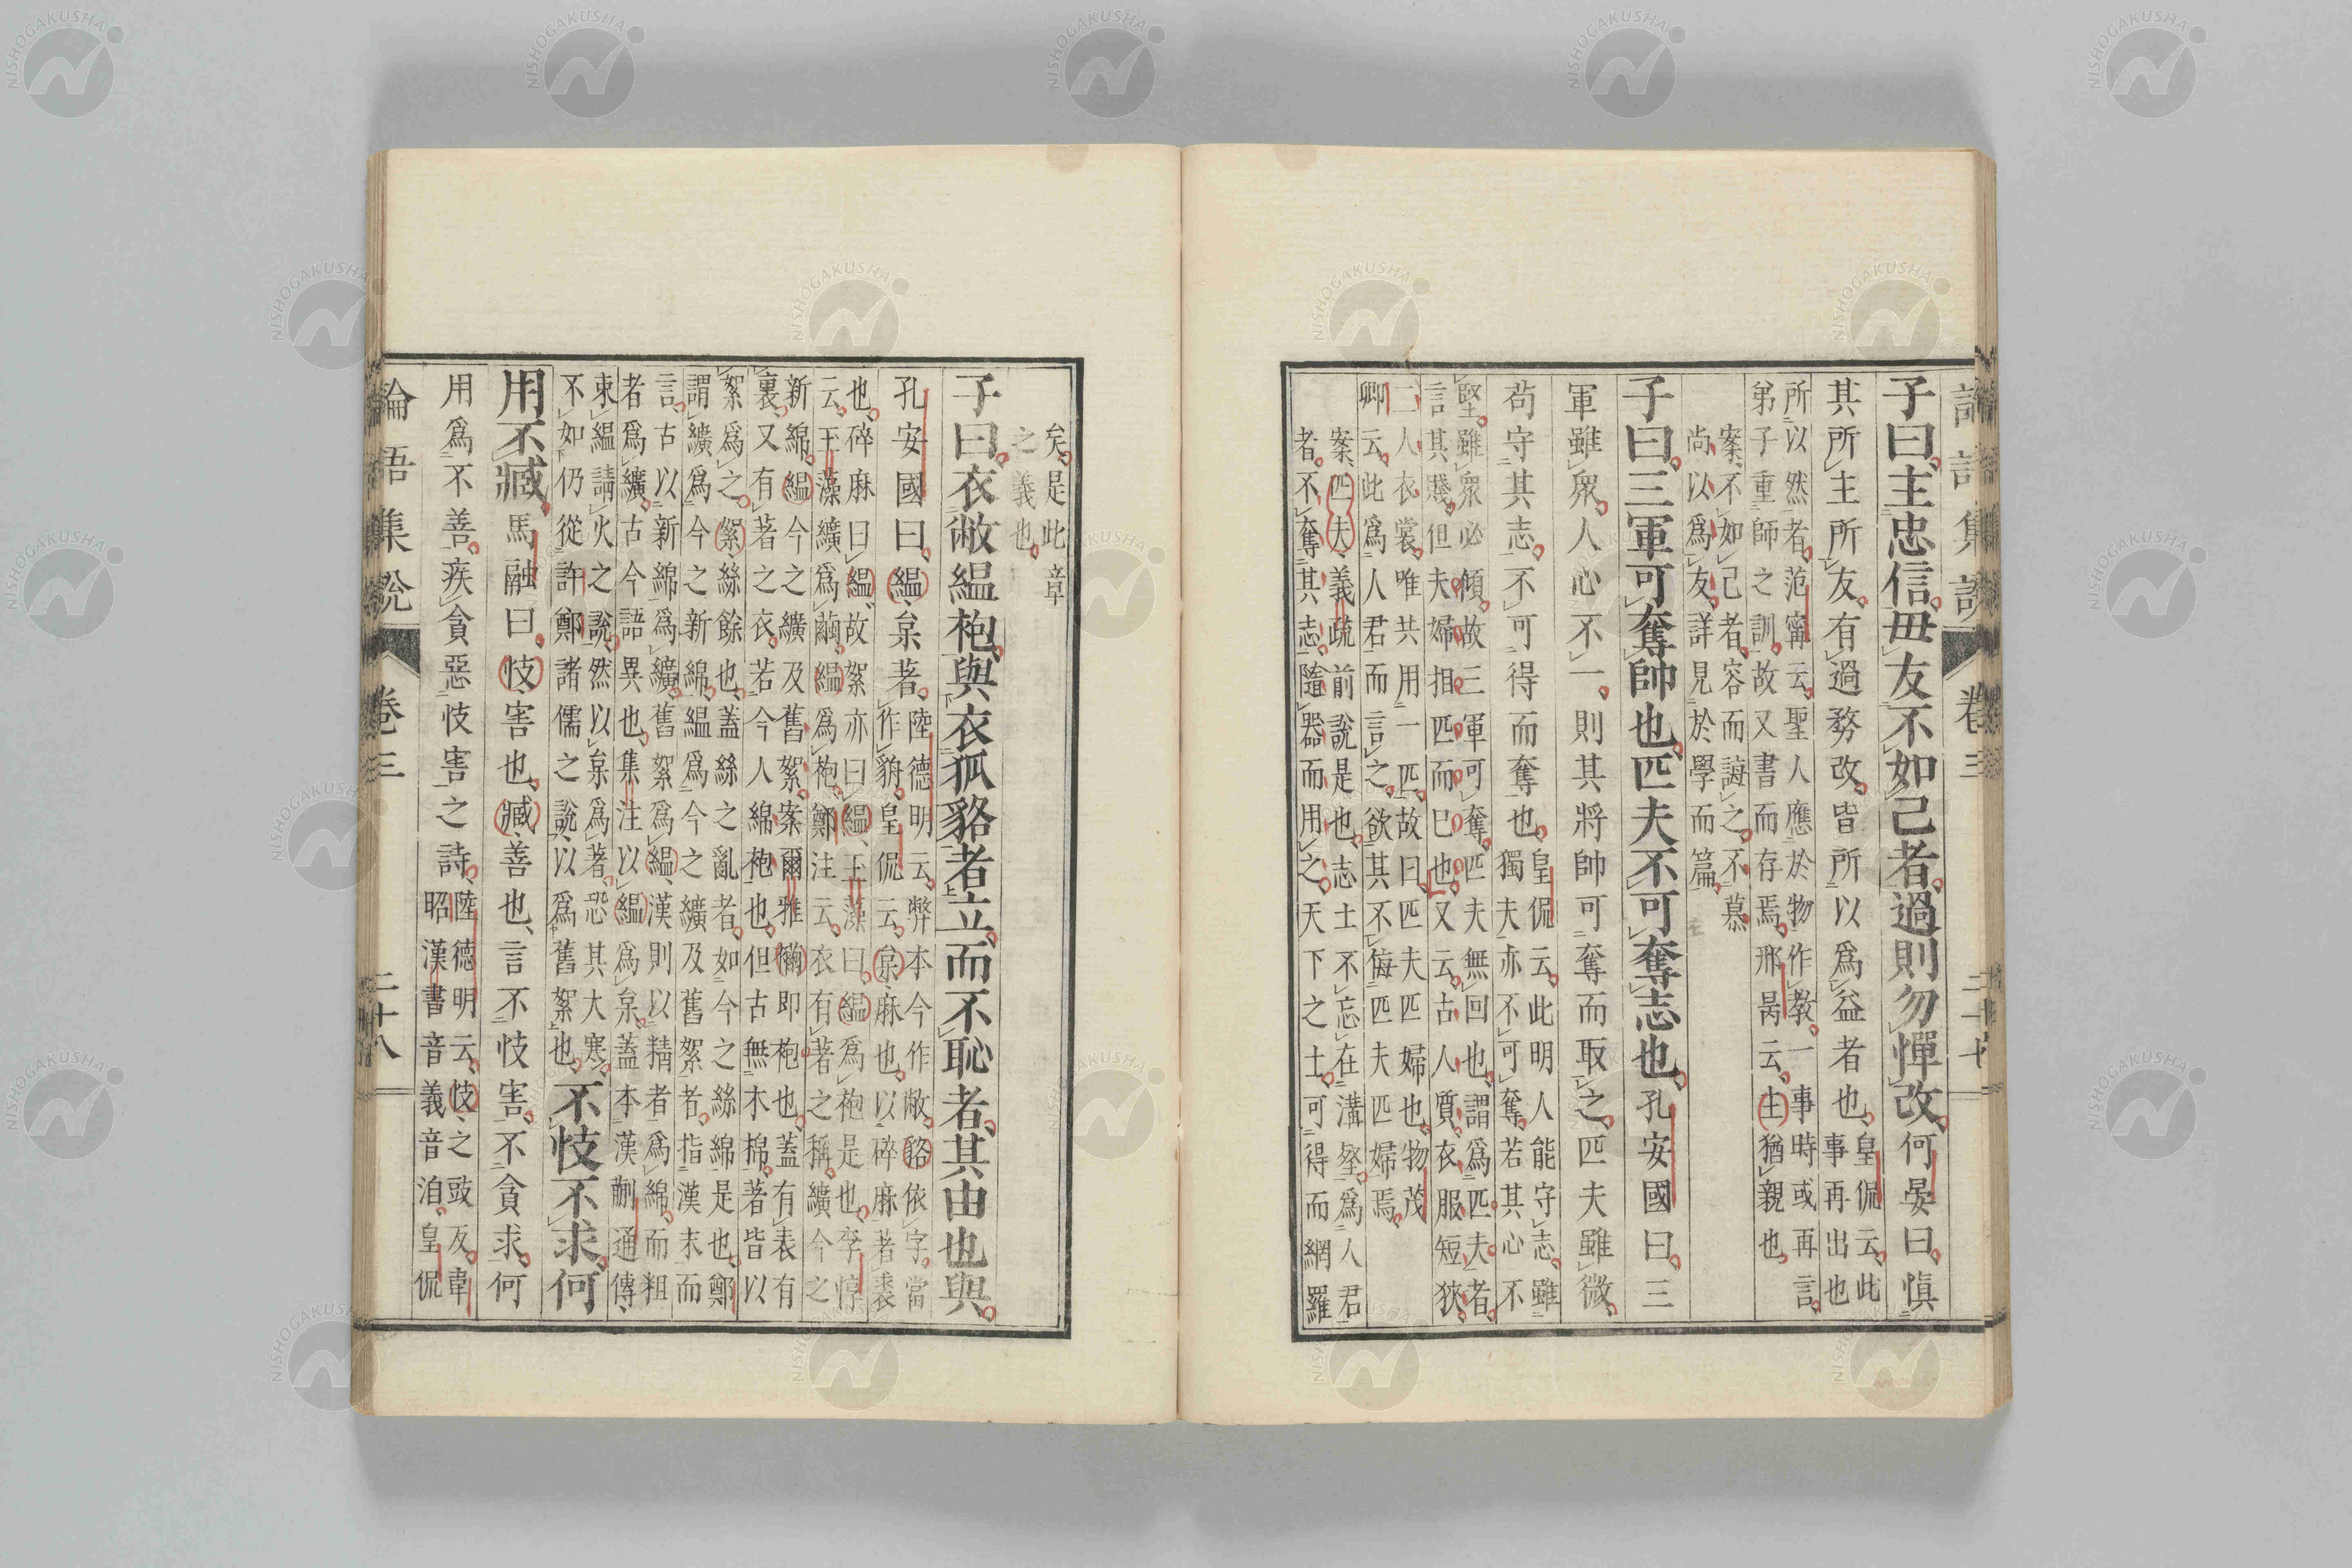 卷三
子曰主忠信毋友不如己者過則勿憚改何晏曰慎
其所主所友有過務改皆所以爲益者也皇侃云此
事再出也
所以然者范寗云聖人應於物作教一事時或再言
弟子重師之訓故又書而存焉邢昺云主猶親也
案不如己者容而誨之不慕
尚以爲友詳見於學而篇
子曰三軍可奪帥也匹夫不可奪志也孔安國曰三
軍雖衆人心不一則其將帥可奪而取之匹夫雖微
苟守其志不可得而奪也皇侃云此明人能守志雖
獨夫亦不可奪若其心不
堅雖衆必傾故三軍可奪匹夫無回也謂爲匹夫者
言其賤但夫婦相匹而已也又云古人質衣服短狹
二人衣裳唯共用一匹故曰匹夫匹婦也物茂
卿云此爲人君而言之欲其不侮匹夫匹婦焉
案匹夫義疏前說是也志士不忘在溝壑爲人君
者不奪其志隨器而用之天下之士可得而網羅
矣是此章
之義也
子曰衣敝縕袍與衣狐貉者立而不恥者其由也與
孔安國曰縕枲著陸德明云弊本今作敝貉依字當
作貈皇侃云枲麻也以碎麻著裘
也碎麻曰縕故絮亦曰縕玉藻曰縕爲袍是也李惇
云玉藻纊爲繭縕爲袍鄭注云衣有著之稱纊今之
新綿縕今之纊及舊絮案爾雅襺即袍也蓋有表有
裏又有著之衣若今人綿袍也但古無木棉著皆以
絮爲之絮絲餘也蓋絲之亂者如今之絲綿是也鄭
謂纊爲今之新綿縕爲今之纊及舊絮者指漢末而
言古以新綿爲纊舊絮爲縕漢則以精者爲綿而粗
者爲纊古今語異也集注以縕爲枲蓋本漢蒯通傳
束縕請火之說然以枲爲著恐其大寒
不如仍從許鄭諸儒之說以爲舊絮也不忮不求何
用不臧馬融曰忮害也臧善也言不忮害不貪求何
用爲不善疾貪惡忮害之詩陸德明云忮之豉反韋
昭漢書音義音洎皇侃
論語集說 卷三 二十八